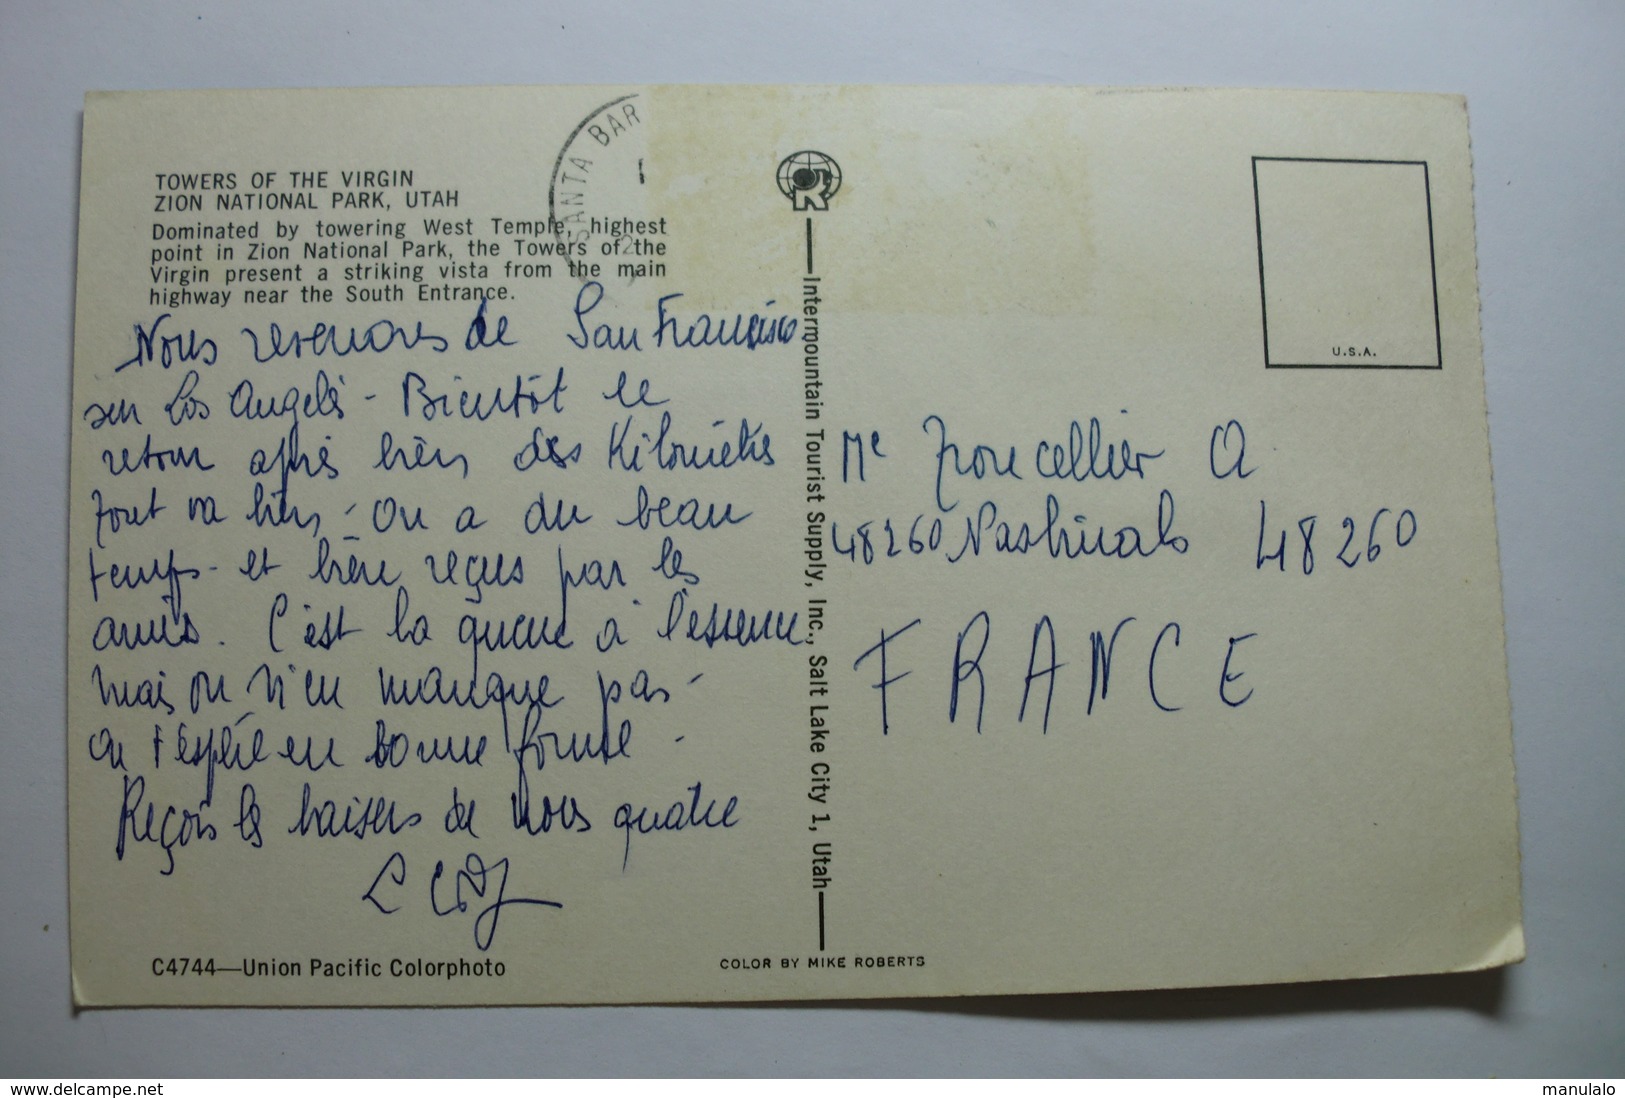 TOWERS OF THE VIRGIN
ZION NATIONAL PARK, UTAH
Dominated by towering West Temple, highest
point in Zion National Park, the Towers of the
Virgin present a striking vista from the main
highway near the South Entrance.
SANTA BAR
Nous revenons de San Francisco
sur Los Angelès - Bientôt le
retour après bien des Kilomètres
Tout va bien - On a du beau
temps - et bien reçus par les
amis. C'est la queue à l'essence
mais on n'en manque pas -
On t'espère en bonne forme -
Reçois les baisers de nous quatre
C4744—Union Pacific Colorphoto
COLOR BY MIKE ROBERTS
Intermountain Tourist Supply, Inc., Salt Lake City 1, Utah
U.S.A.
Me Troucellier A
48260 Nasbinals 48260
FRANCE
www.delcampe.net
manulalo